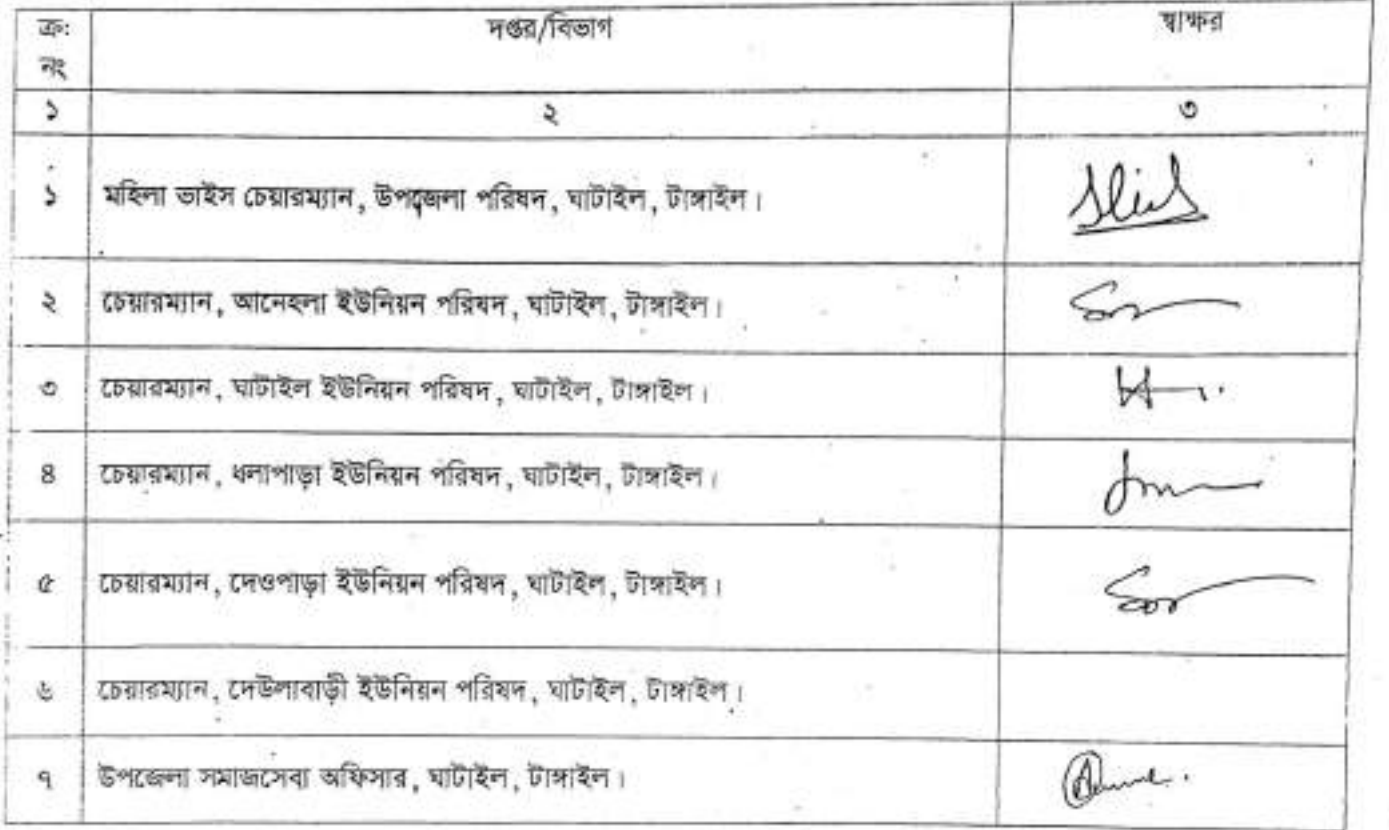 ক্র: দপ্তর/বিভাগ স্বাক্ষর
নং
১ ২ ৩
১ মহিলা ভাইস চেয়ারম্যান, উপজেলা পরিষদ, ঘাটাইল, টাঙ্গাইল।
২ চেয়ারম্যান, আনেহলা ইউনিয়ন পরিষদ, ঘাটাইল, টাঙ্গাইল।
৩ চেয়ারম্যান, ঘাটাইল ইউনিয়ন পরিষদ, ঘাটাইল, টাঙ্গাইল।
৪ চেয়ারম্যান, ধলাপাড়া ইউনিয়ন পরিষদ, ঘাটাইল, টাঙ্গাইল।
৫ চেয়ারম্যান, দেওপাড়া ইউনিয়ন পরিষদ, ঘাটাইল, টাঙ্গাইল।
৬ চেয়ারম্যান, দেউলাবাড়ী ইউনিয়ন পরিষদ, ঘাটাইল, টাঙ্গাইল।
৭ উপজেলা সমাজসেবা অফিসার, ঘাটাইল, টাঙ্গাইল।